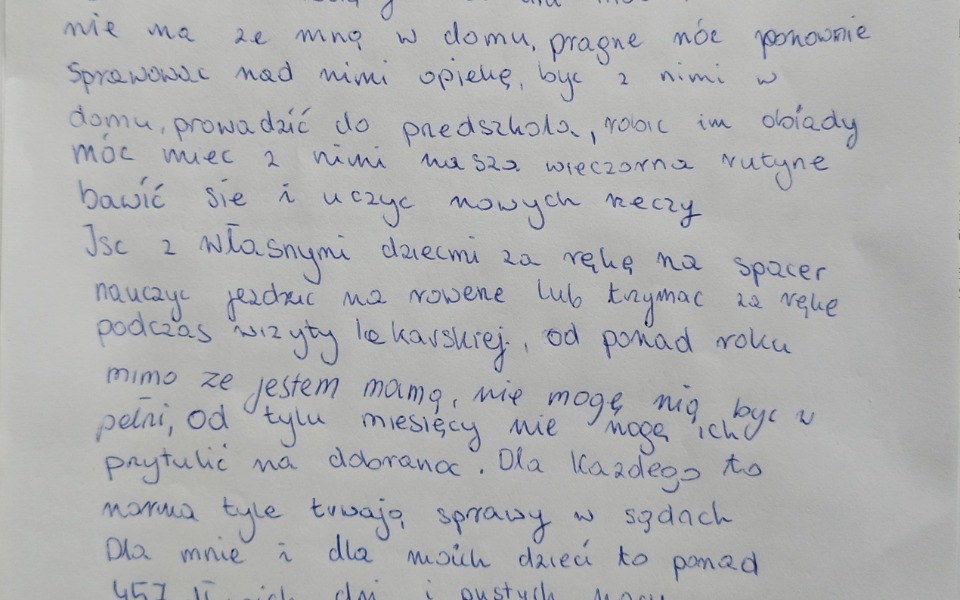 nie ma ze mną w domu, pragne móc ponownie
Sprawowac nad nimi opiekę, byc z nimi w
domu, prowadzić do predszkola, robic im obiady
móc miec z nimi nasza wieczorna rutyne
bawić sie i uczyc nowych reczy
Isc z własnymi dziecmi za rękę na spacer
nauczyc jezdzic na rowene lub trzymac za ręke
podczas wizyty lekarskiej, od ponad roku
mimo ze jestem mamą, nie mogę nią byc w
pełni, od tylu miesięcy nie mogę ich
prytulić na dobranoc. Dla każdego to
norma tyle trwają sprawy w sądach
Dla mnie i dla moich dzieci to ponad
457 dni i pustych nocy